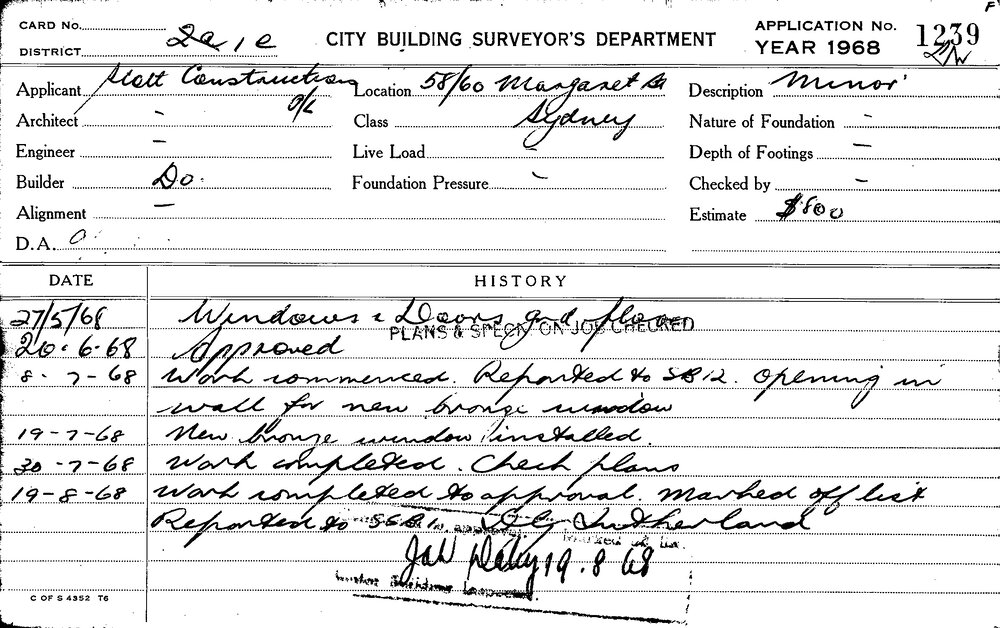 CARD No.
DISTRICT 2a, c
CITY BUILDING SURVEYOR'S DEPARTMENT
APPLICATION No. 1239
YEAR 1968
Applicant Stott Constructions P/L
Location 58/60 Margaret St
Description Minor
Architect -
Class Sydney
Nature of Foundation -
Engineer -
Live Load -
Depth of Footings -
Builder Do.
Foundation Pressure -
Checked by -
Alignment -
Estimate $800
D.A. 0
DATE HISTORY
27/5/68 Windows & Doors grd floor
PLANS & SPECN ON JOB CHECKED
20.6.68 Approved
8-7-68 Work commenced. Reported to SB12. Opening in
wall for new bronze window
19-7-68 New bronze window installed.
30-7-68 Work completed. Check plans
19-8-68 Work completed to approval. Marked off list
Reported to Sutherland
19.8.68
C OF S 4352 T6